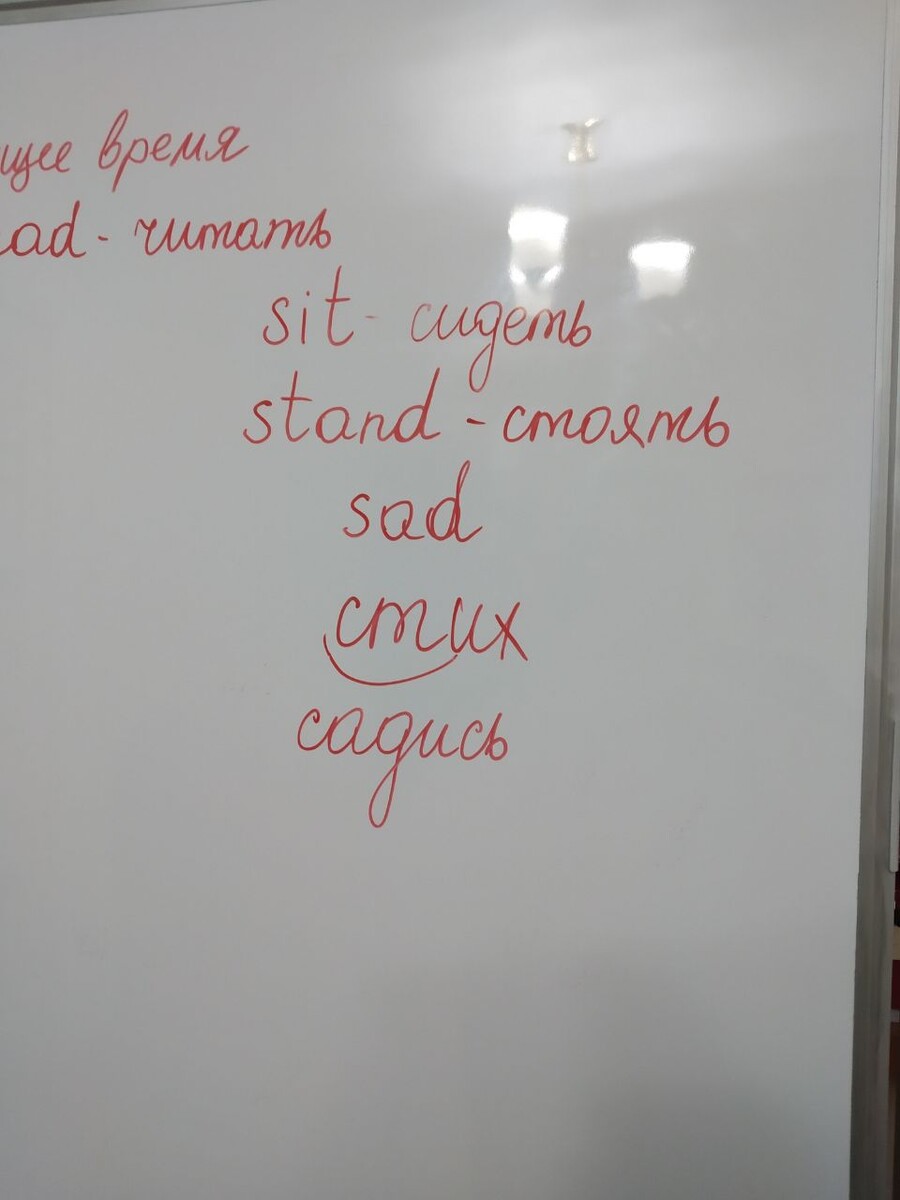 щее время
ead - читать
sit - сидеть
stand - стоять
sad
стих
садись